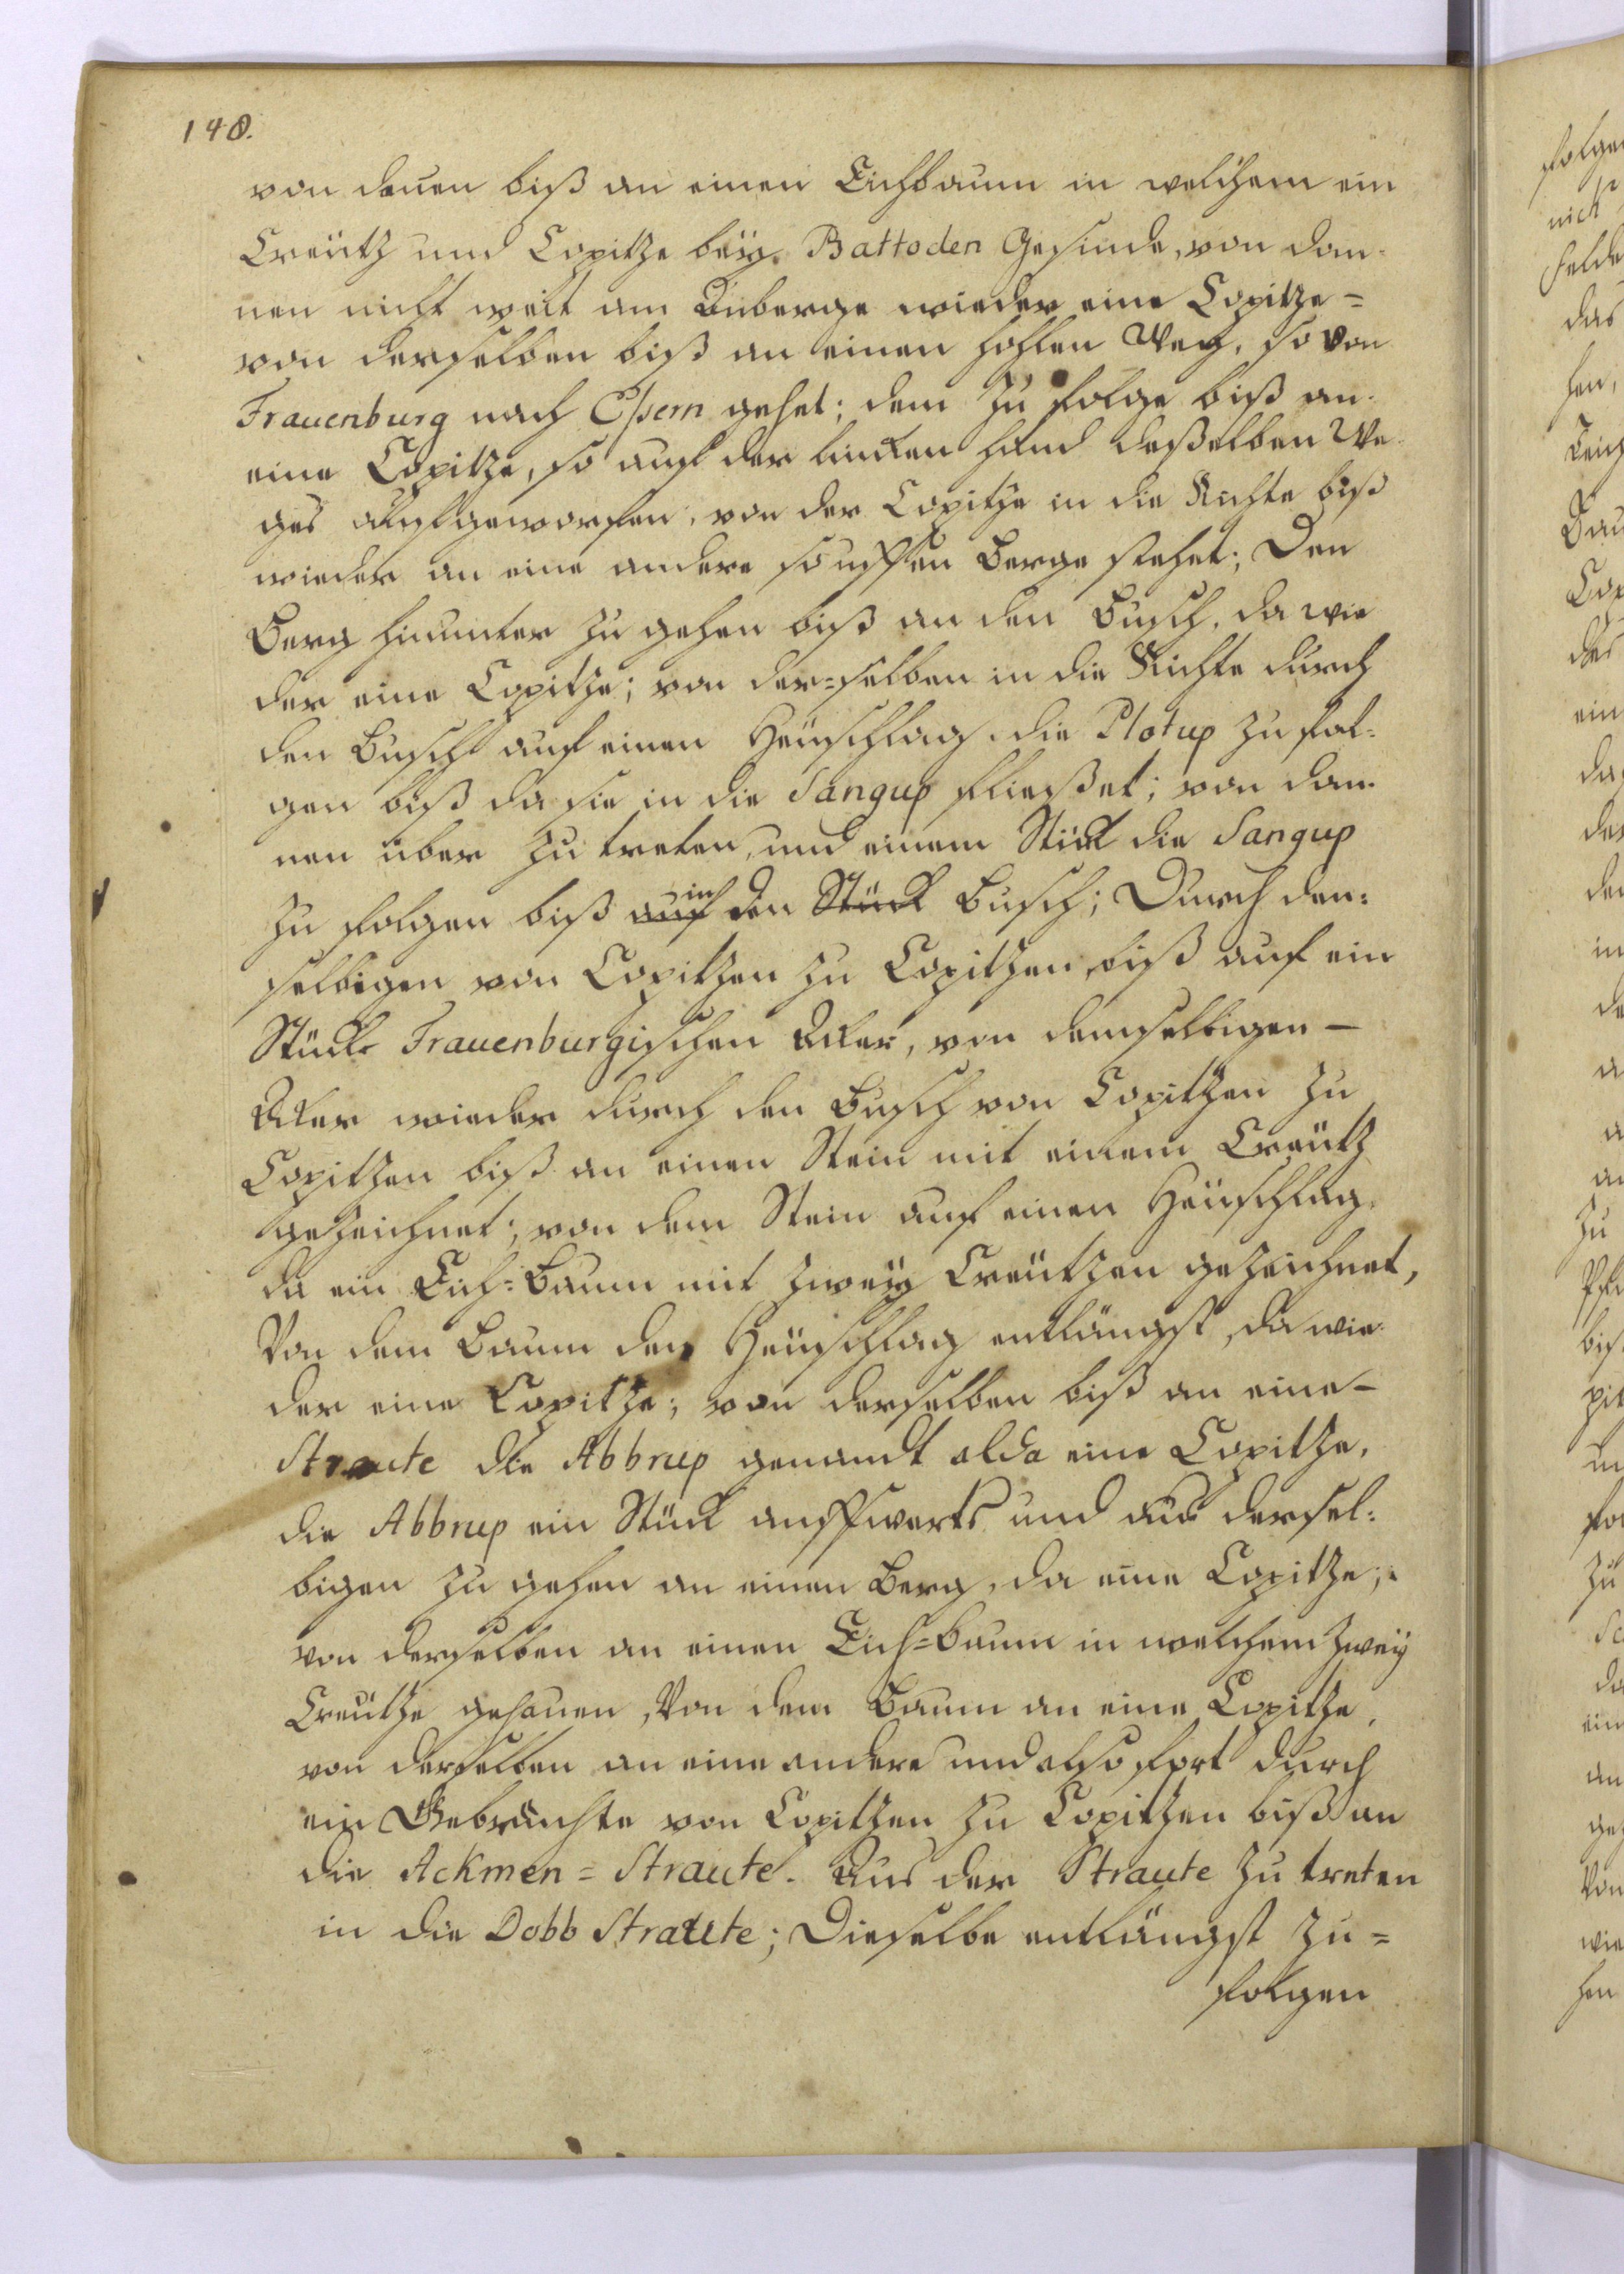 148.
von danen biß an einen Eichbaum in welchem ein
Creütz und Copitze beÿ. Battoden Gesinde, von dan-
nen nicht weit am Anberge wieder eine Copitze =
von derselben biß an einen hohlen Weg, so von
Frauenburg nach Eßern gehet; dem zu folge biß an
eine Copitze, so auf der lincken Hand deßelben We-
ges aufgeworfen, von der Copitze in die Richte biß
wieder an eine andere so uffen Berge stehet; Den
Berg hinunter zu gehen biß an den Busch, da wie
der eine Copitze; von der=selben in die Richte durch
den Busch auf einen Heüschlag die Plotup zu fol-
gen biß da sie in die Sangup fließet; von dan-
nen über zu treten, und einem Stück die Sangup
zu folgen biß auf in den Stück Busch; Durch den=
selbigen von Copitzen zu Copitzen, biß auf ein
Stück Frauenburgischen Acker, von demselbigen —
Acker wieder durch den Busch von Copitzen zu
Copitzen biß an einen Stein mit einem Creütz
gezeichnet; von dem Stein auf einen Heüschlag
da ein Eich=Baum mit zweÿ Creützen gezeichnet,
Von dem Baum den Heüschlag entlängst, da wie-
der eine Copitze; von derselben biß an eine —
Straute die Abbrup genandt alda eine Copitze,
die Abbrup ein Stück auffwerts und aus dersel=
bigen zu gehen an einen Berg, da eine Copitze;
von derselben an einen Eich=Baum in welchem zweÿ
Creütze gehauen, Von dem Baum an eine Copitze,
von derselben an eine andere und also fort durch
ein Gebrüchte von Copitzen zu Copitzen biß an
die Ackmen = Straute. Aus der Straute zu treten
in die Dobb Straute; Dieselbe entlängst zu =
folgen